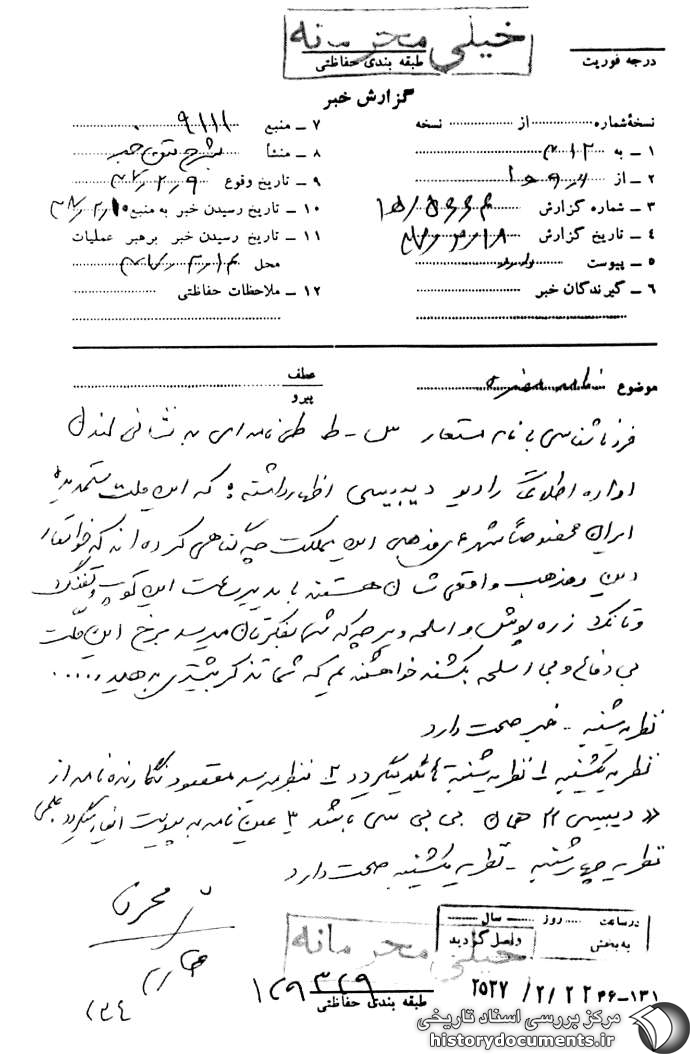 خیلی محرمانه
طبقه بندی حفاظتی
درجه فوریت
گزارش خبر
نسخهٔ شماره از نسخه
۱ ـ به ۳۱۲
۲ ـ از
۳ ـ شماره گزارش
۴ ـ تاریخ گزارش
۵ ـ پیوست
۶ ـ گیرندگان خبر
۷ ـ منبع ۹۱۱۱
۸ ـ منشأ بشرح متون خبر
۹ ـ تاریخ وقوع
۱۰ ـ تاریخ رسیدن خبر به منبع
۱۱ ـ تاریخ رسیدن خبر برهبر عملیات
محل
۱۲ ـ ملاحظات حفاظتی
موضوع نامه
عطف
پیرو
فرد ناشناسی با نام مستعار س - ط طی نامه ای به نشانی لندن
اداره اطلاعات رادیو دیبیسی اظهار داشته: که این ملت ستمدیده
ایران مخصوصاً شهرهای مذهبی این مملکت چه گناهی کرده اند که خواستار
دین و مذهب واقعی شان هستند با بدین این توپ و تفنگ
و تانک زره پوش و اسلحه و هرچه که شما بفکرتان میرسد برخ این ملت
بی دفاع و بی اسلحه بکشند خواهشمندیم که شما تذکر بیشتری بدهید و....
نظریه شنبه - خبر صحت دارد
نظریه یکشنبه ۱- نظریه شنبه تائید میگردد ۲- بنظر میرسد مقصود نگارنده نامه از
«دیبیسی» همان بی بی سی باشد ۳- عین نامه به پیوست ایفاد میگردد. علمی
نظریه چهارشنبه - نظریه یکشنبه صحت دارد
درساعت روز سال
به بخش واصل گردید
خیلی محرمانه
طبقه بندی حفاظتی
۱۲۹۳۲۹
۲۵۳۷/۲/۲۲
۱۳۱-۴۶
مرکز بررسی اسناد تاریخی
historydocuments.ir